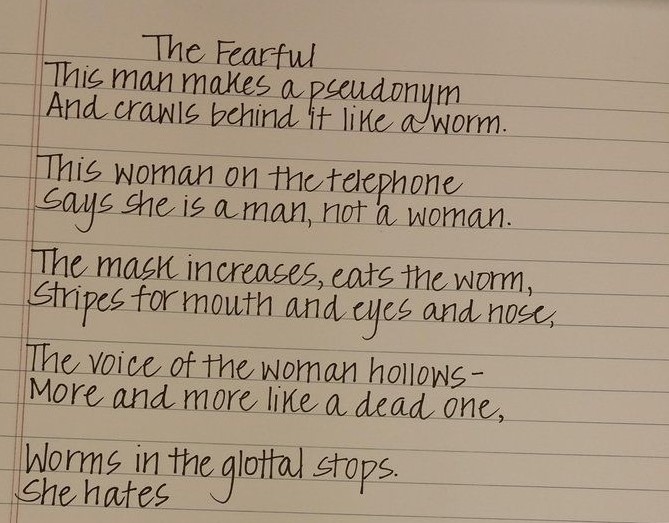 The Fearful
This man makes a pseudonym
And crawls behind it like a worm.
This woman on the telephone
Says she is a man, not a woman.
The mask increases, eats the worm,
Stripes for mouth and eyes and nose,
The voice of the woman hollows-
More and more like a dead one,
Worms in the glottal stops.
She hates